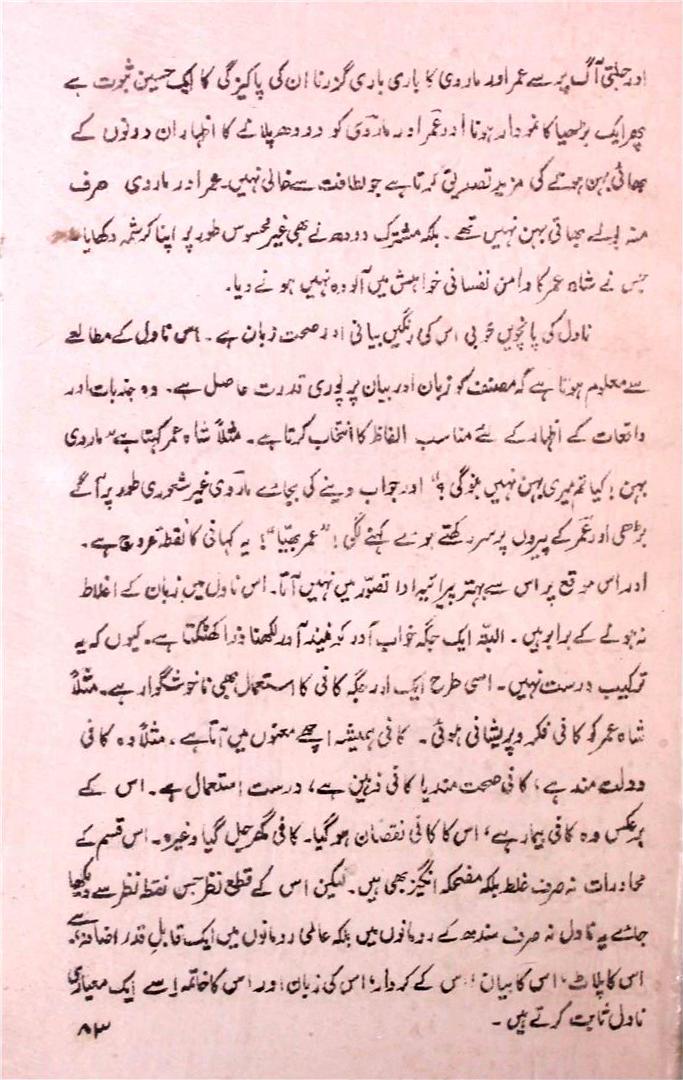 اور جلتی آگ پر سے عمر اور ماروی کا باری باری گزرنا ان کی پاکیزگی کا ایک حسین ثبوت ہے
پھر ایک بڑھیا کا نمودار ہونا اور عمر اور ماروی کو دودھ پلانے کا اظہار ان دونوں کے
بھائی بہن ہونے کی مزید تصدیق کرتا ہے جو لطافت سے خالی نہیں۔ عمر اور ماروی صرف
منہ بولے بھائی بہن نہیں تھے۔ بلکہ مشترک دودھ نے بھی غیر محسوس طور پر اپنا کرشمہ دکھایا
جس نے شاہ عمر کا دامن نفسانی خواہش میں آلودہ نہیں ہونے دیا۔
ناول کی پانچویں خوبی اس کی رنگیں بیانی اور صحت زبان ہے۔ اس ناول کے مطالعے
سے معلوم ہوتا ہے کہ مصنف کو زبان اور بیان پر پوری قدرت حاصل ہے۔ وہ جذبات اور
واقعات کے اظہار کے لئے مناسب الفاظ کا انتخاب کرتا ہے۔ مثلاً شاہ عمر کہتا ہے "ماروی
بہن! کیا تم میری بہن نہیں بنو گی؟" اور جواب دینے کی بجائے ماروی غیر شعوری طور پر آگے
بڑھی اور عمر کے پیروں پر سر رکھتے ہوئے کہنے لگی! "عمر بھیّا"! یہ کہانی کا نقطۂ عروج ہے۔
اور اس موقع پر اس سے بہتر پیرائیہ ادا تصوّر میں نہیں آتا۔ اس ناول میں زبان کے اغلاط
نہ ہونے کے برابر ہیں۔ البتہ ایک جگہ خواب آور کو نیند آور لکھنا ذرا کھٹکتا ہے۔ کیوں کہ یہ
ترکیب درست نہیں۔ اسی طرح ایک اور جگہ کافی کا استعمال بھی ناخوشگوار ہے۔ مثلاً
شاہ عمر کو کافی فکر و پریشانی ہوئی۔ کافی ہمیشہ اچھے معنوں میں آتا ہے، مثلاً وہ کافی
دولت مند ہے، کافی صحت مند یا کافی ذہین ہے، درست استعمال ہے۔ اس کے
برعکس وہ کافی بیمار ہے، اس کا کافی نقصان ہوگیا۔ کافی گھر جل گیا وغیرہ۔ اس قسم کے
محاورات نہ صرف غلط بلکہ مضحکہ انگیز بھی ہیں۔ لیکن اس کے قطع نظر جس نقطۂ نظر سے دیکھا
جائے یہ ناول نہ صرف سندھ کے رومانوں میں بلکہ عالمی رومانوں میں ایک قابل قدر اضافہ ہے۔
اس کا پلاٹ، اس کا بیان، اس کے کردار، اس کی زبان اور اس کا خاتمہ اسے ایک معیاری
ناول ثابت کرتے ہیں۔
۸۳